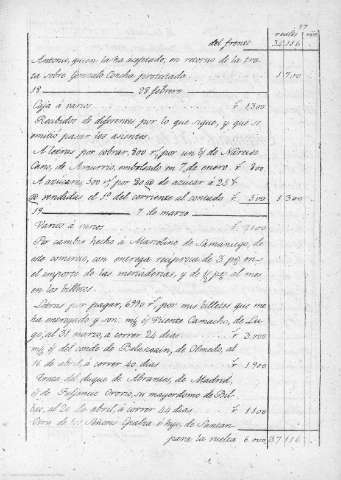 17
reales mrs
del frente 32,116
Antonio, quien la ha aceptado, en retorno de la tra-
ta sobre Gonzalo Concha protestada 1,700
18 28 febrero
Caja á varios r.s 1300
Recibidos de diferentes por lo que sigue, y que se
omitió pasar los asientos.
A letras por cobrar, 800 r.s por un de Narciso
Cano, de Amurrio, embolsado en 7 de enero r.s 800
A azúcares, 500 r.s por 20 @ de azúcar á 25 r.s
@ vendidas el 1º del corriente al contado r.s 500 1,300
19 7 de marzo
Varios á varios r.s
Por cambio hecho á Marcelino de Samaniego, de
este comercio, con entrega recíproca de 3 p% en
el importe de las mercaderías, y de ½ p% al mes
en los billetes
Letras por pagar, por mis billetes que me
ha entregado y son: Vicente Camacho, de Lu-
go, al 31 marzo, á correr 24 dias r.s
del conde de de Olmedo, al
16 de abril, á correr 40 dias r.s 1900
Orden del duque de Abrantes, de Madrid,
de Ildefonso Osorio, su mayordomo de Bil-
bao, al 20 de abril, á correr 44 dias r.s 1100
Otra de los Señores é hijo, de Santan-
para la vuelta 6,000 37,116